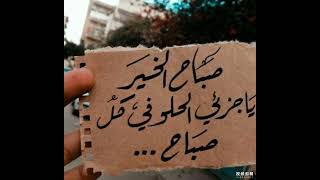 صَبَاح الخَيرَ
يَا جُزئي الحلو فيِ كُل
صبَاح ...